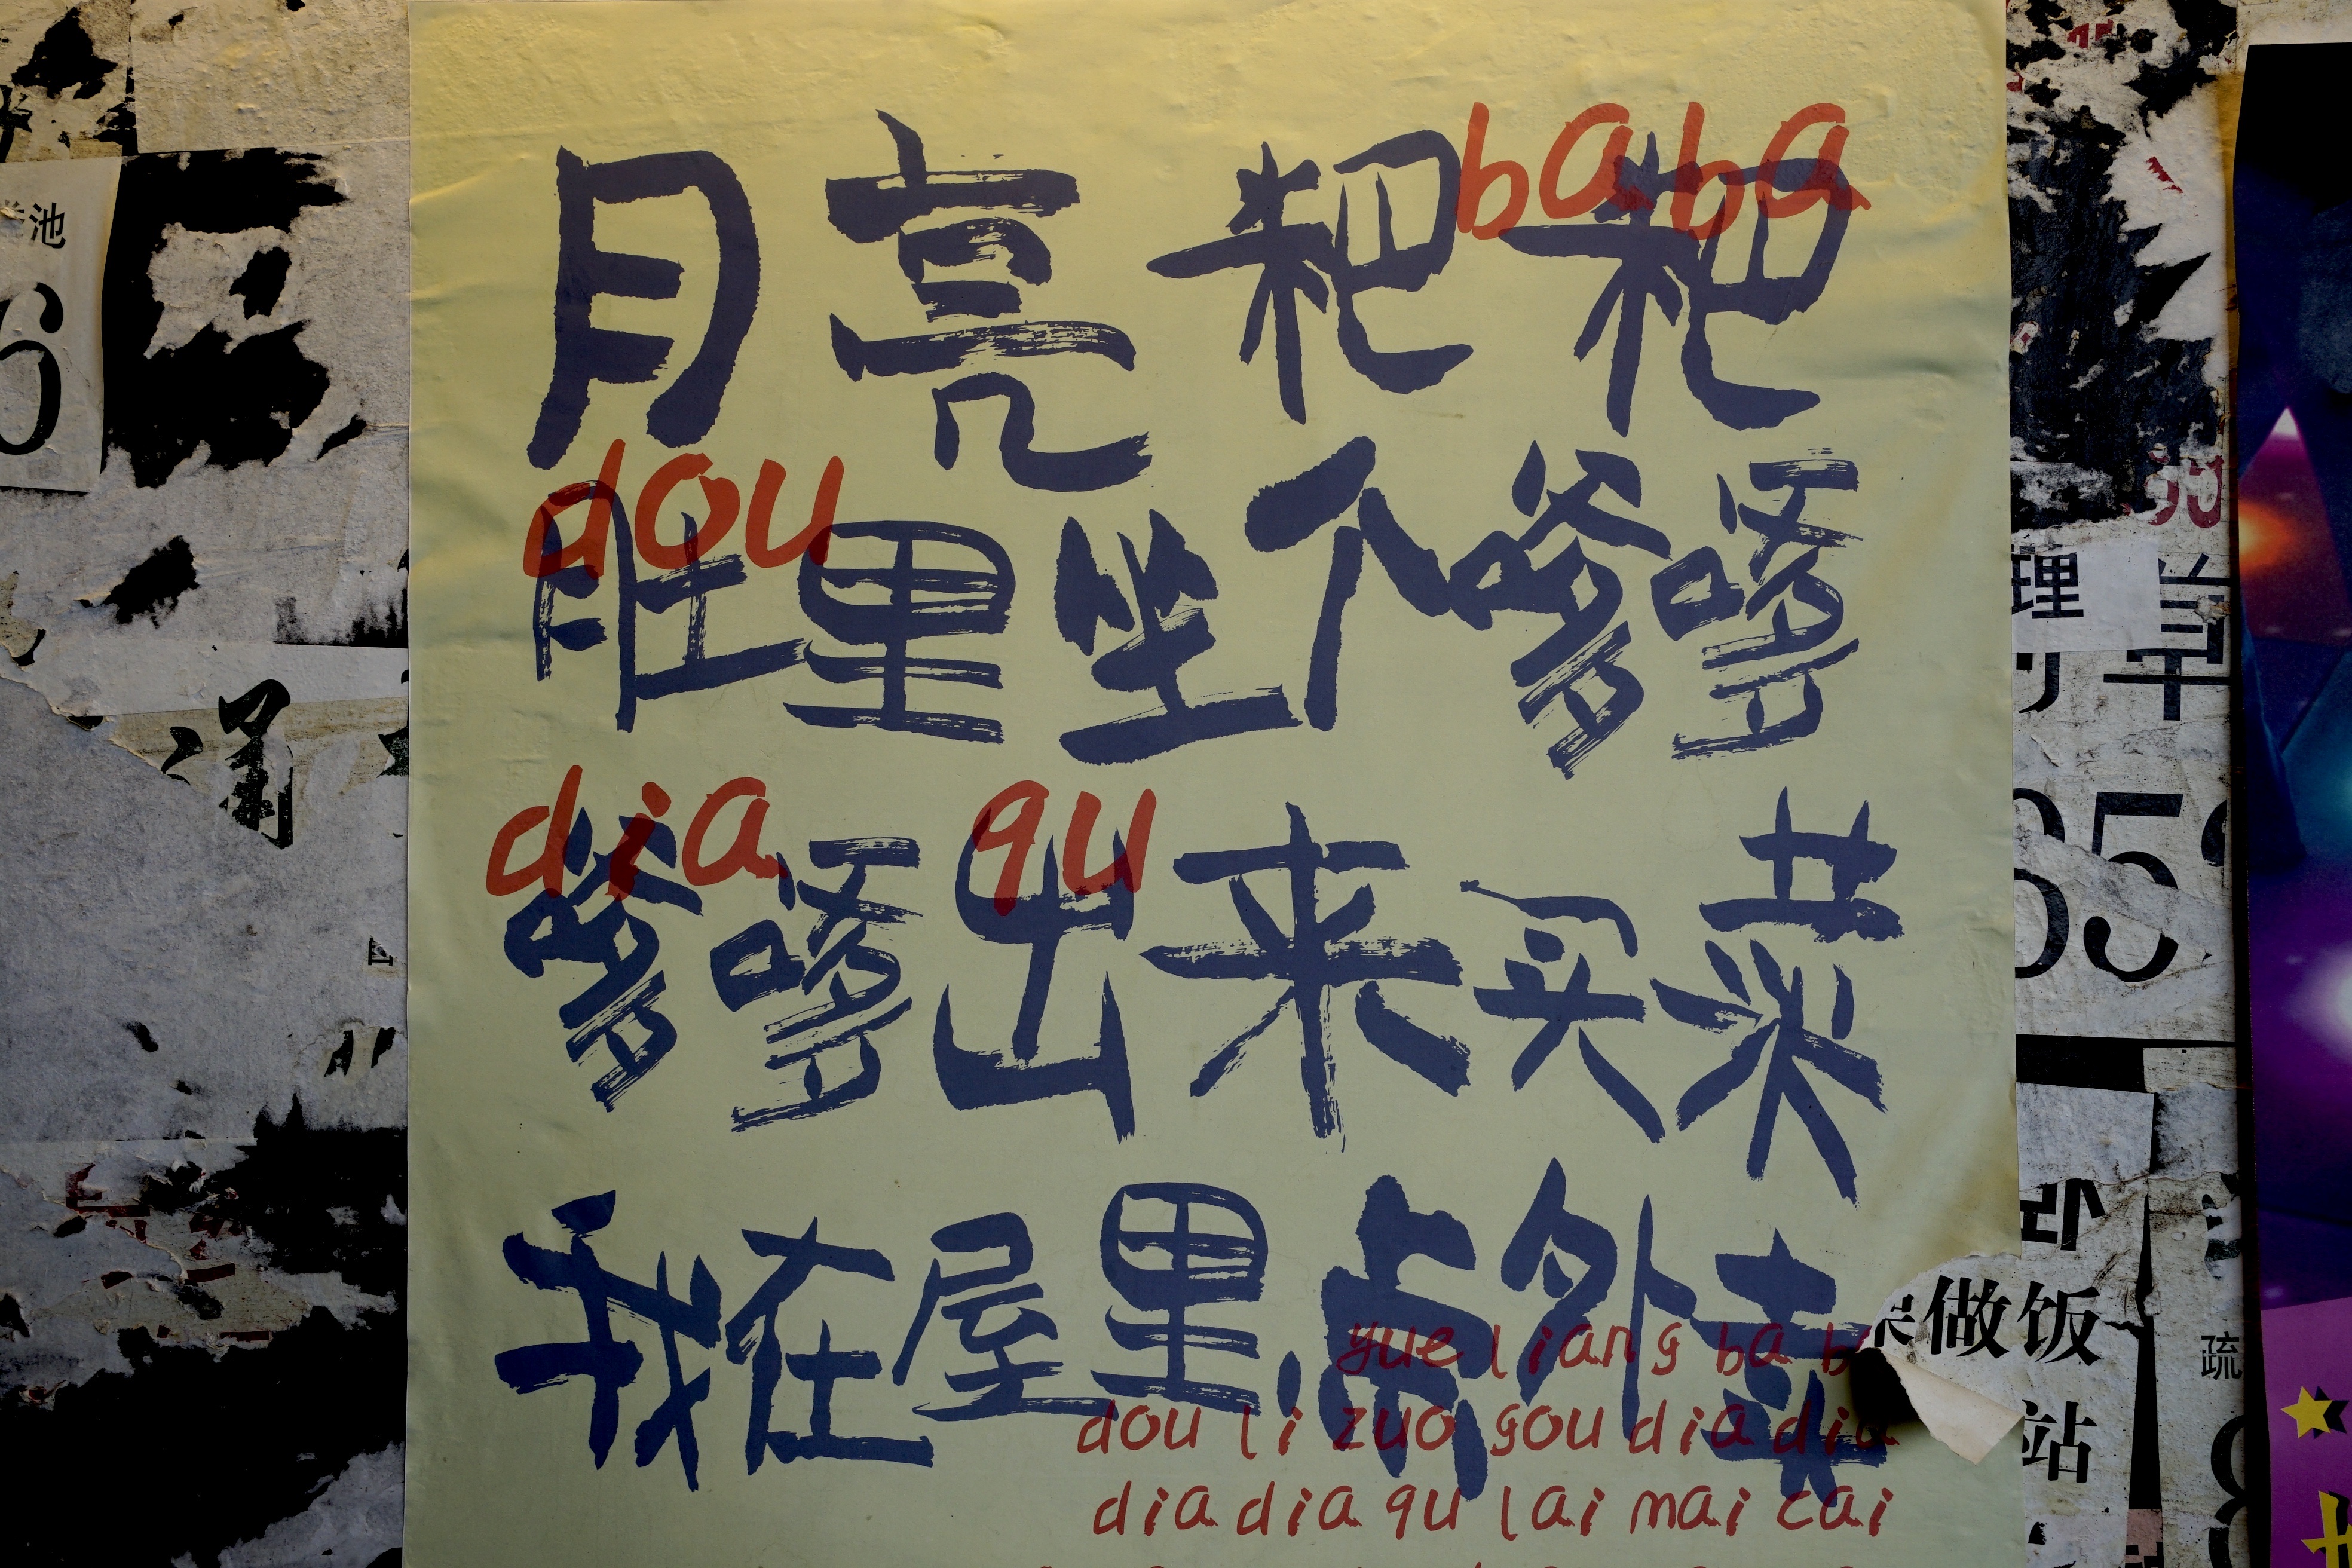 baba
月亮粑粑
dou
肚里坐个嗲嗲
dia qu
嗲嗲出来买菜
我在屋里点外卖
yue liang ba
dou li zuo gou dia dia
dia dia qu lai mai cai
池
6
理
做饭
站
疏